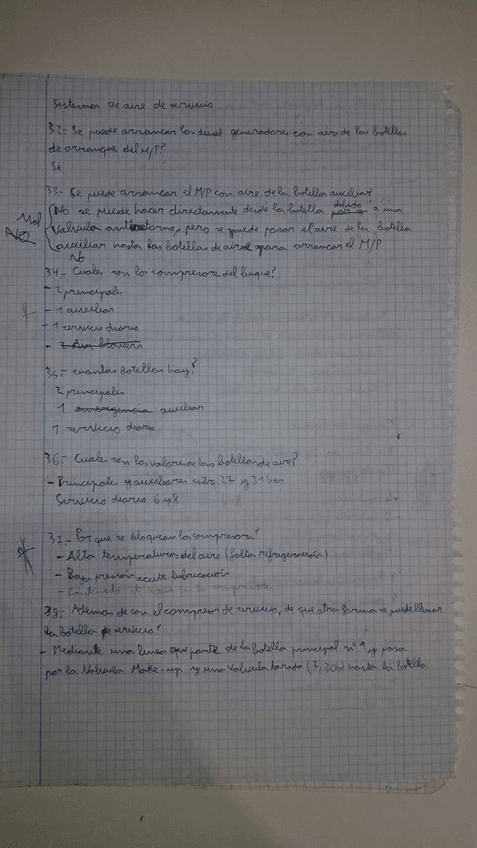 Sistemas de aire de servicio
32- Se puede arrancar los diesel generadores con aire de las botellas
de arranque del M/P?
Si
33- Se puede arrancar el M/P con aire de la botella auxiliar?
No se puede hacer directamente desde la botella debido a una
Mal
No
Valvula antiretorno, pero se puede pasar el aire de la botella
auxiliar hasta las botellas de aire para arrancar el M/P
No
34- Cuales son lo compresores del buque?
- 2 principales
- 1 auxiliar
- 1 servicio diario
35- cuantas Botellas hay?
2 principales
1 emergencia auxiliar
1 servicio diario
36- Cuales son los valores de las botellas de aire?
- Principales y auxiliares entre 27 y 31 bar
Servicio diario 6 y 8
37- Por que se bloquean los compresores?
- Alta temperatura del aire (falta refrigeración)
- Baja presión aceite lubricación
38- Ademas de con el compresor de servicio, de que otra forma se puede llenar
la botella de servicio?
- Mediante una linea que parte de la botella principal nº 1 y pasa
por la Valvula Make-up y una valvula tarada hasta la botella